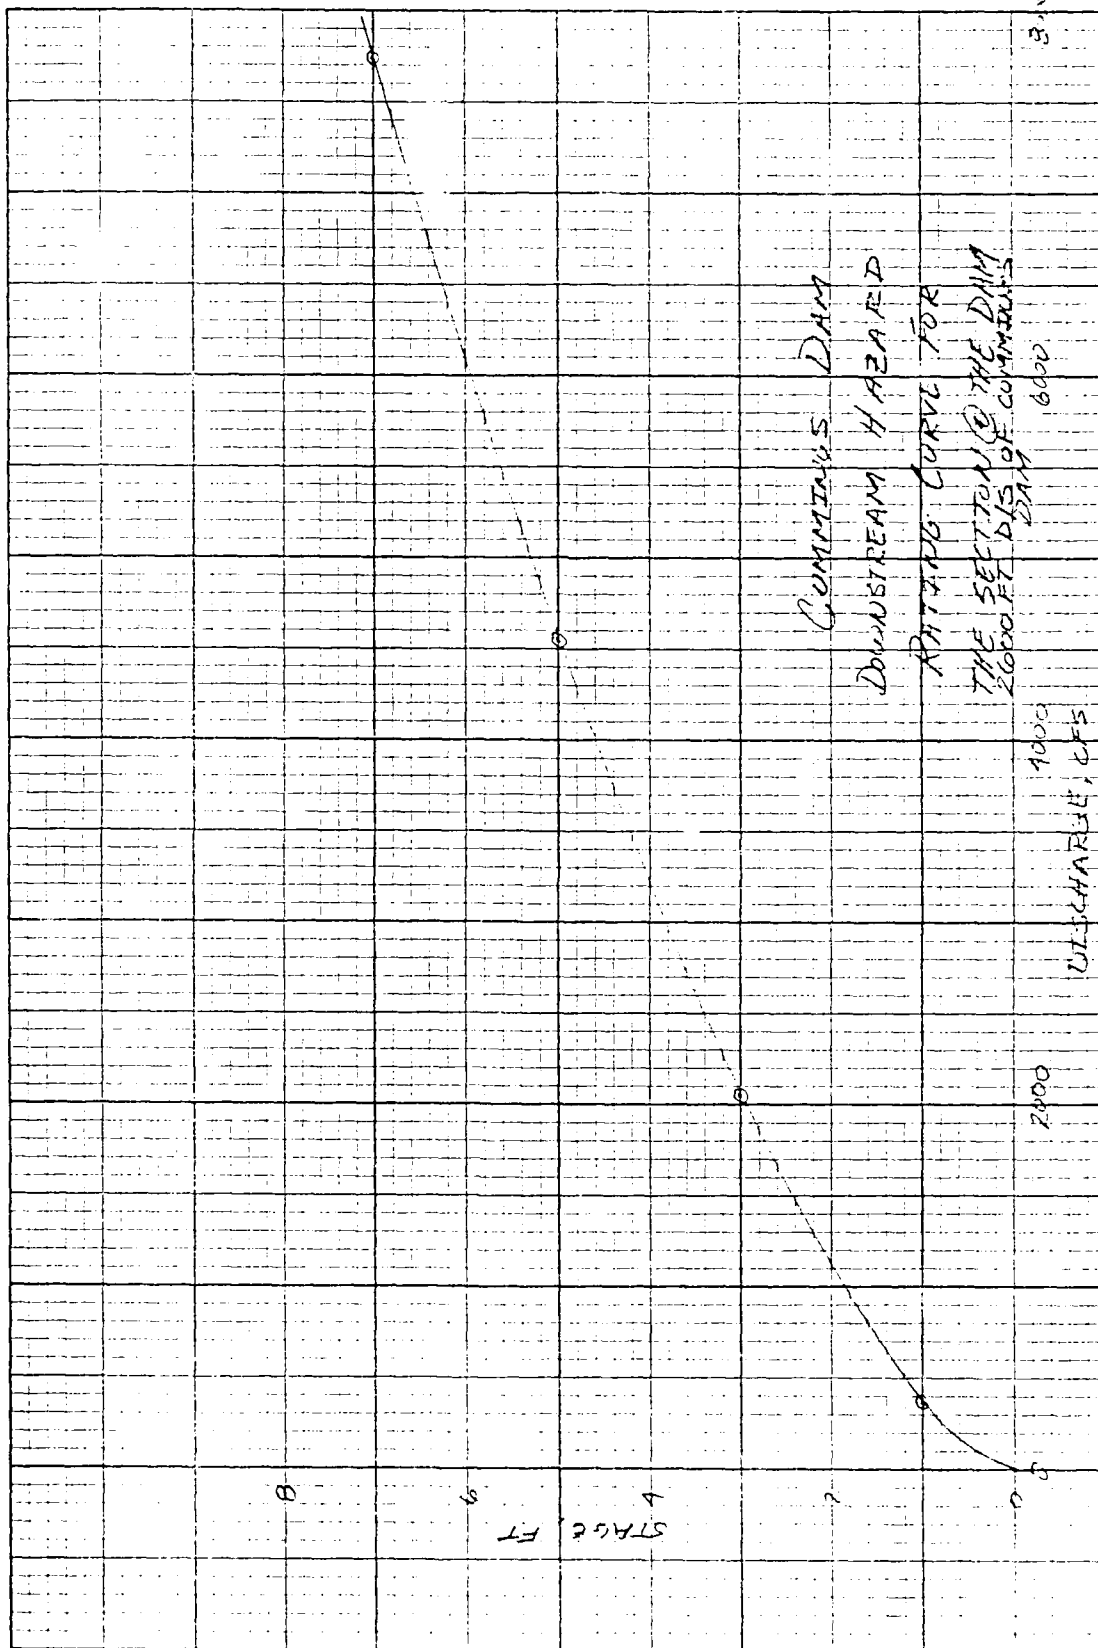 CUMMINGS DAM
DOWNSTREAM HAZARD
RATING CURVE FOR
THE SECTION @ THE DAM
2600 FT D/S OF CUMMINGS
DAM
STAGE, FT
8
6
4
2
0
0
2000
4000
6000
DISCHARGE, CFS